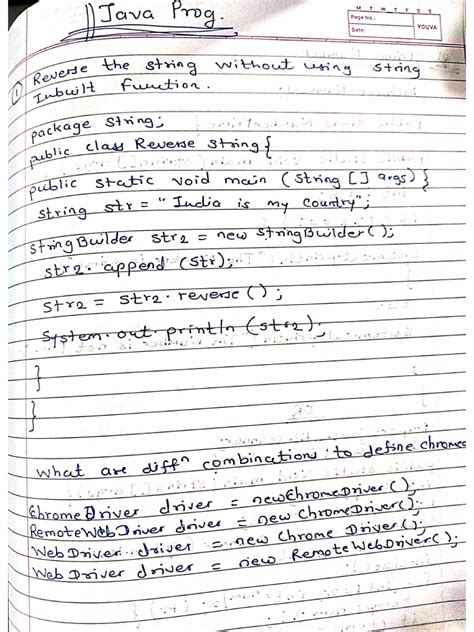 Java Prog.
M T W T F S S
Page No.:
Date:
YOUVA
① Reverse the string without using string
Inbuilt function.
package string;
public class Reverse string {
public static void main (string [] args) {
string str = "India is my country";
stringBuilder str2 = new stringBuilder();
str2. append (str);
str2 = str2. reverse ();
System. out. println (str2);
}
}
what are diffn combinations to define chrome
ChromeDriver driver = newChromeDriver();
RemoteWebDriver driver = new ChromeDriver();
WebDriver driver = new Chrome Driver();
WebDriver driver = new RemoteWebDriver();